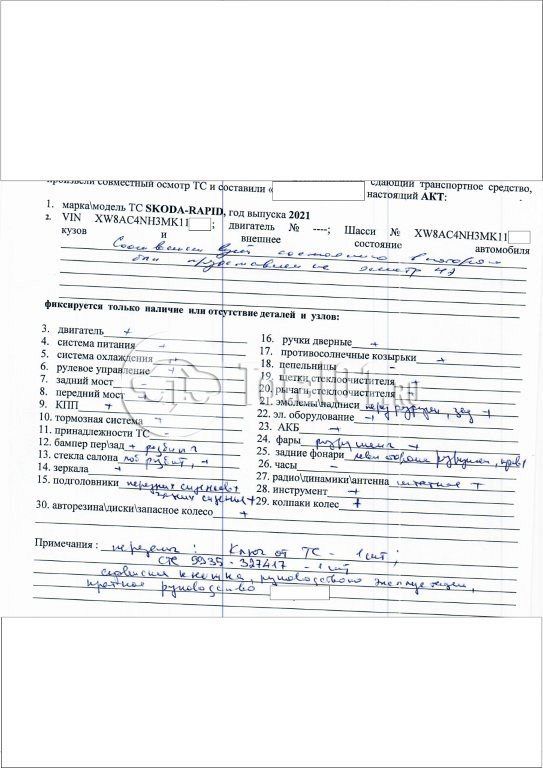 произвели совместный осмотр ТС и составили «
сдающий транспортное средство,
настоящий АКТ:
1. марка\модель ТС SKODA-RAPID, год выпуска 2021
2. VIN XW8AC4NH3MK11 ; двигатель № ----; Шасси № XW8AC4NH3MK11
кузов и внешнее состояние автомобиля
состоянию в котором
был на осмотр
фиксируется только наличие или отсутствие деталей и узлов:
3. двигатель +
4. система питания +
5. система охлаждения +
6. рулевое управление +
7. задний мост -
8. передний мост +
9. КПП +
10. тормозная система +
11. принадлежности ТС -
12. бампер пер\зад +
13. стекла салона +
14. зеркала +
15. подголовники передних сидений +
задних сидений +
16. ручки дверные +
17. противосолнечные козырьки +
18. пепельницы -
19. щетки стеклоочистителя
20. рычаги стеклоочистителя
21. эмблемы\надписи +
22. эл. оборудование +
23. АКБ +
24. фары +
25. задние фонари
26. часы -
27. радио\динамики\антенна штатное +
28. инструмент +
29. колпаки колес +
30. авторезина\диски\запасное колесо +
Примечания : переданы : Ключ от ТС - 1 шт ;
СТС 9935 - 327417 - 1 шт
сервисная книжка, руководство эксплуатации,
краткое руководство